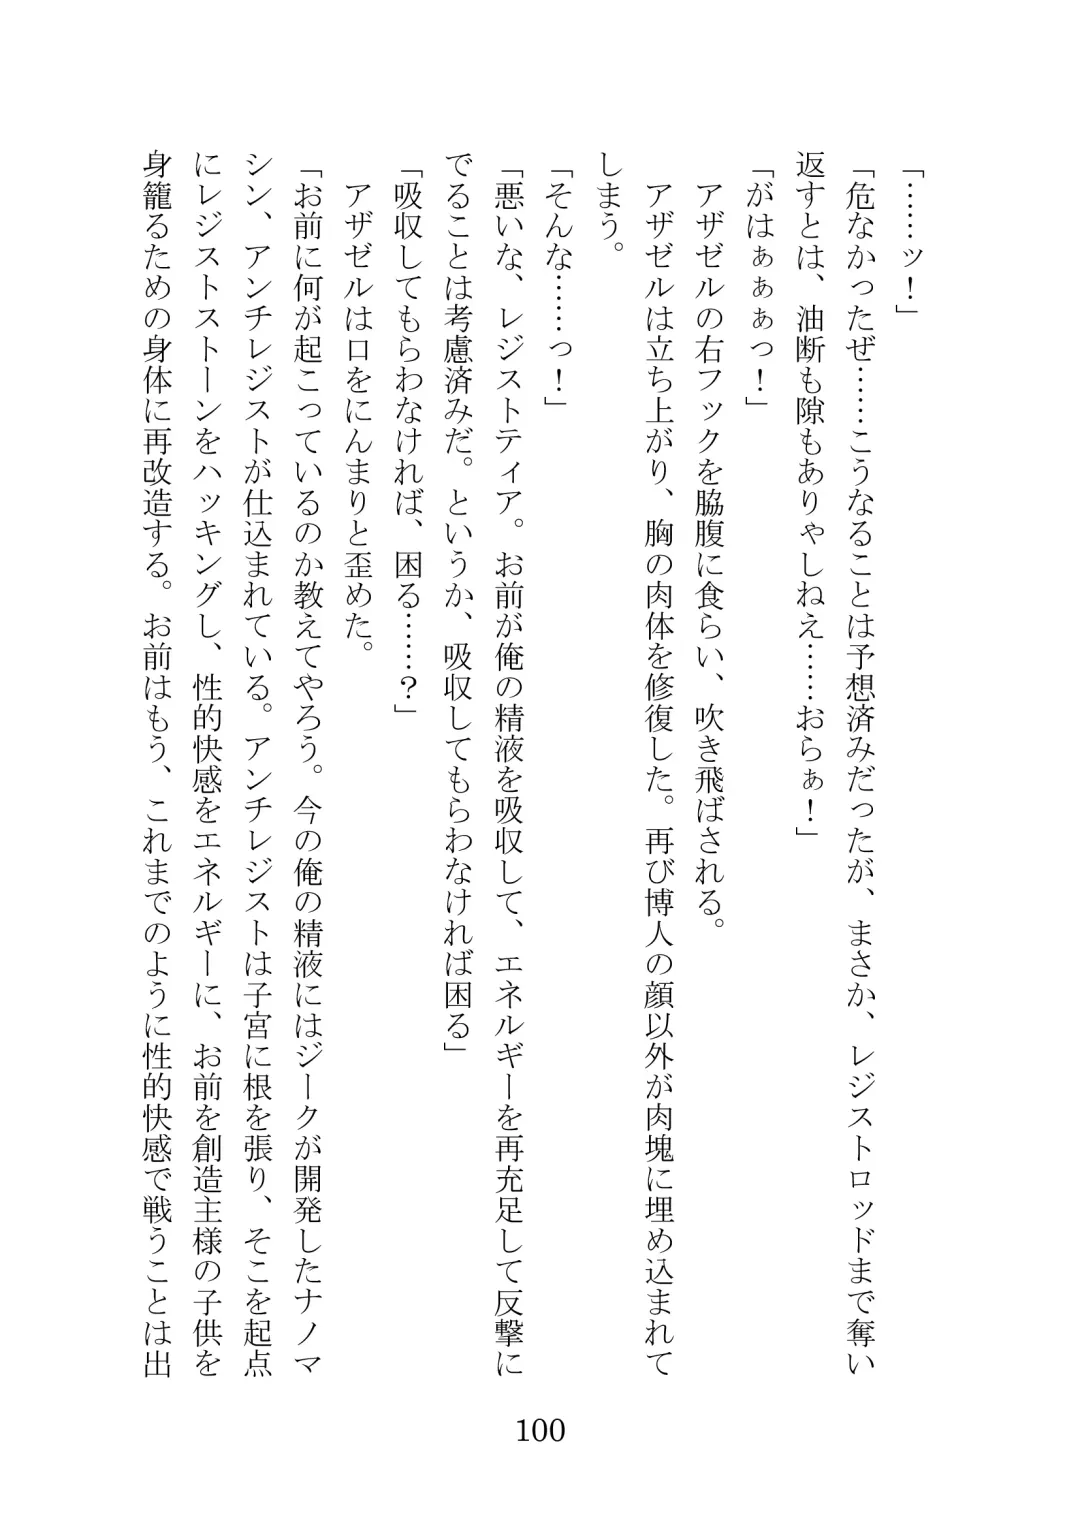 「……ッ！」
「危なかったぜ……こうなることは予想済みだったが、まさか、レジストロッドまで奪い
返すとは、油断も隙もありゃしねえ……おらぁ！」
「がはぁぁぁっ！」
　アザゼルの右フックを脇腹に食らい、吹き飛ばされる。
　アザゼルは立ち上がり、胸の肉体を修復した。再び博人の顔以外が肉塊に埋め込まれて
しまう。
「そんな……っ！」
「悪いな、レジストティア。お前が俺の精液を吸収して、エネルギーを再充足して反撃に
でることは考慮済みだ。というか、吸収してもらわなければ困る」
「吸収してもらわなければ、困る……？」
　アザゼルは口をにんまりと歪めた。
「お前に何が起こっているのか教えてやろう。今の俺の精液にはジークが開発したナノマ
シン、アンチレジストが仕込まれている。アンチレジストは子宮に根を張り、そこを起点
にレジストストーンをハッキングし、性的快感をエネルギーに、お前を創造主様の子供を
身籠るための身体に再改造する。お前はもう、これまでのように性的快感で戦うことは出
100